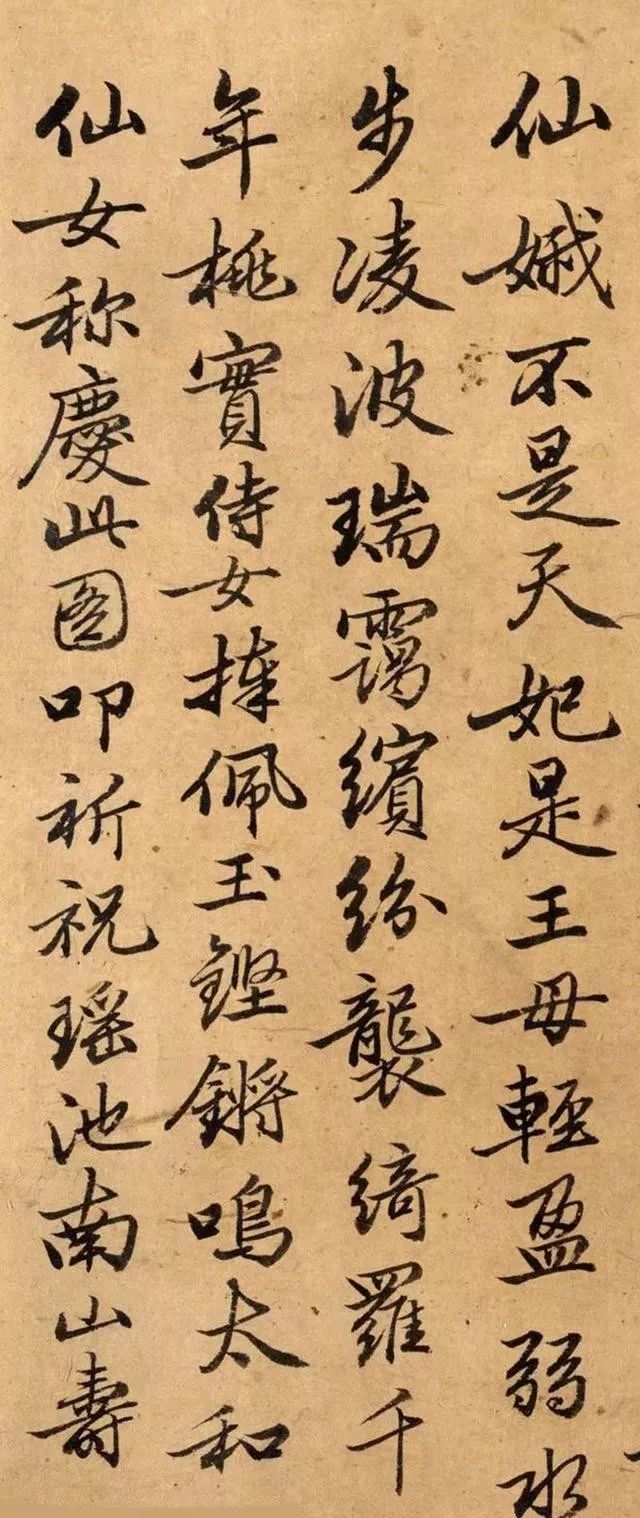 仙娥不是天妃是王母輕盈弱水
步凌波瑞靄繽紛襲綺羅千
年桃實侍女捧佩玉鏗鏘鳴太和
仙女称慶此圖叩祈祝瑶池南山壽